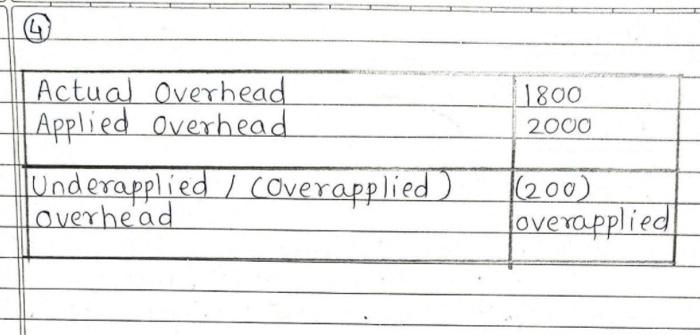 4
Actual Overhead 1800
Applied Overhead 2000
Underapplied / (Overapplied) (200)
overhead overapplied